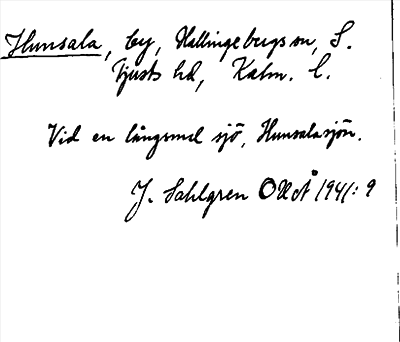 Hunsala, by, Hallingebergs sn, S.
Tjusts hd, Kalm. l.
Vid en långsmal sjö, Hunsalasjön.
J. Sahlgren ONoÅ 1941: 9